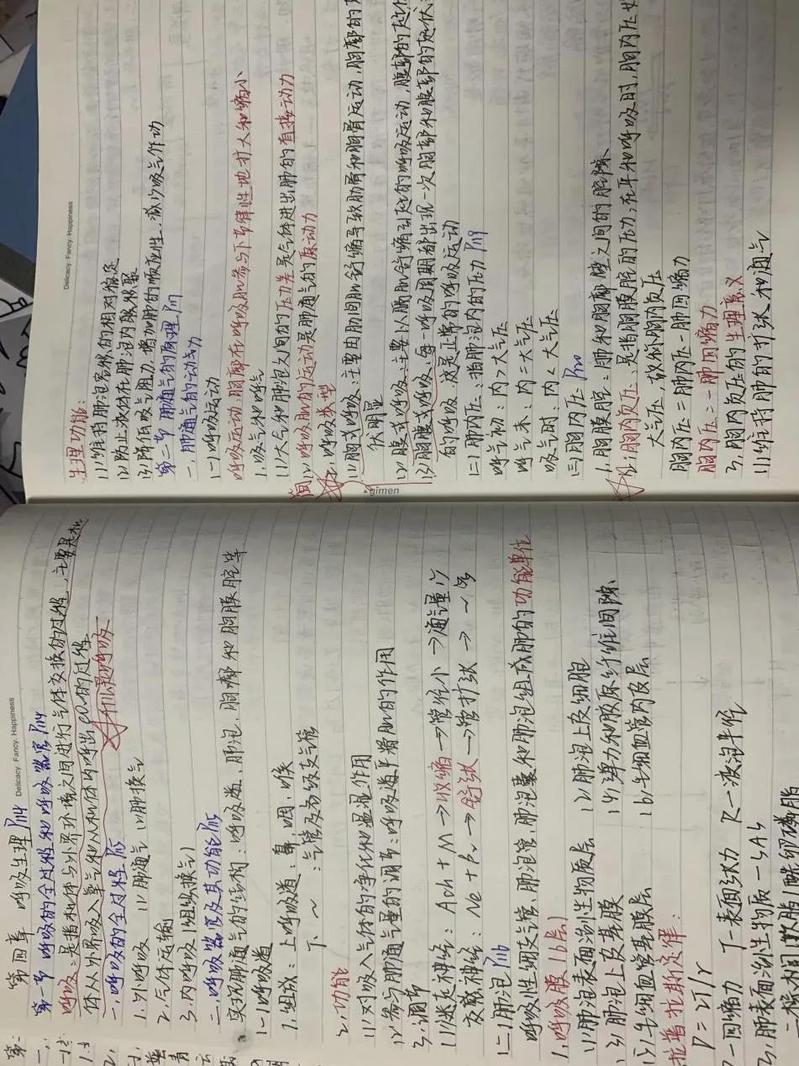 第四章 呼吸生理 P114
第一节 呼吸的全过程和呼吸器官 P114
呼吸：是指机体与外界环境之间进行气体交换的过程，主要是机
体从外界吸入氧气和从机体内呼出CO₂的过程
一、呼吸的全过程 P115
1.外呼吸 (1)肺通气 (2)肺换气
2.气体运输
3.内呼吸(组织换气)
二、呼吸器官及其功能 P115
实现肺通气的结构：呼吸道、肺泡、胸廓和胸膜腔等
(一)呼吸道
1.组成：上呼吸道：鼻、咽、喉
下～：气管及各级支气管
2.功能
(1)对吸入气体的净化和温湿作用
(2)参与肺通气量的调节：呼吸道平滑肌的作用
3.调节
(1)迷走神经：Ach+M→收缩→管径小→通气量↓
交感神经：Ne+β₂→舒张→管扩张→～多
(二)肺泡 P116
呼吸性细支气管、肺泡管、肺泡囊和肺泡组成肺的功能单位
1.呼吸膜(6层)
(1)肺泡表面活性物质层 (2)肺泡上皮细胞
(3)肺泡上皮基膜 (4)弹力和胶原纤维间隙
(5)毛细血管基膜层 (6)毛细血管内皮层
拉普拉斯定律：
P=2T/r
P—回缩力 T—表面张力 R—液泡半径
2.肺表面活性物质—SAS
二棕榈酰卵磷脂
Delicacy. Fancy. Happiness
生理功能：
(1)维持肺泡容积的相对稳定
(2)防止液体在肺泡内聚积聚
(3)降低吸气阻力，增加肺的顺应性，减少吸气作功
第二节 肺通气的原理 P117
一、肺通气的动力
(一)呼吸运动
呼吸运动：胸廓在呼吸肌参与下节律性地扩大和缩小
1.吸气和呼气
(1)大气和肺泡之间的压力差是气体进出肺的直接动力
(2)呼吸肌的运动是肺通气的原动力
2.呼吸类型
(1)胸式呼吸：主要由肋间肌舒缩导致肋骨和胸骨运动，胸部的
伏明显
(2)腹式呼吸：主要以膈肌舒缩引起的呼吸运动，腹部的起伏
(3)胸腹式呼吸：每一呼吸周期都出现一次胸部和腹部的起伏
的呼吸，这是正常的呼吸运动
(二)肺内压：指肺泡内的压力 P119
呼气初：内＞大气压
呼气末：内＝大气压
吸气时：内＜大气压
(三)胸内压 P120
1.胸膜腔：肺和胸廓壁之间的腔隙
2.胸内负压：是指胸膜腔的压力；在平和呼吸时，胸内压
大气压，故称胸内负压
胸内压=肺内压-肺回缩力
胸内压=-肺回缩力
3.胸内负压的生理意义
(1)维持肺的扩张和通气
Delicacy. Fancy. Happiness